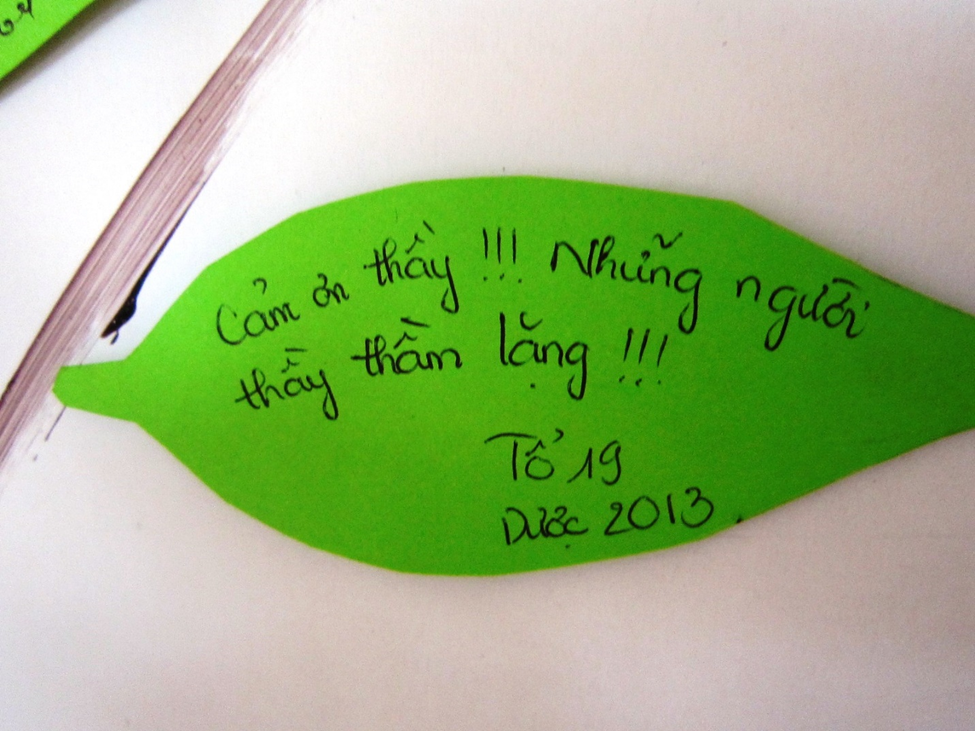 Cảm ơn thầy !!! Những người
thầy thầm lặng !!!
Tổ 19
Dược 2013